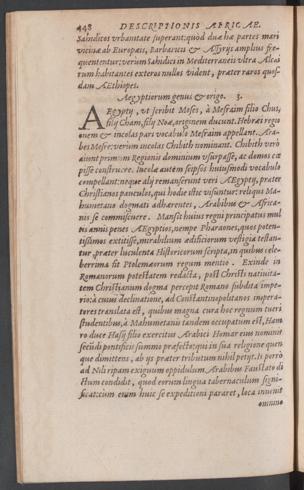 448 DESCRIPTIONIS AFRICAE.
Sahidicos vrbanitate superant: quòd duæ hæ partes mari
vicinæ ab Europæis, Barbaricis & Assyrijs amplius fre-
quententur: verùm Sahidici in Mediterraneis vltra Alcai
rum habitantes exteros nullos vident, præter raros quos-
dam AEthiopes.
AEgyptiorum genus & origo. 3.
AEgyptij, vt scribit Moses, à Mesraim filio Chus,
filij Cham, filij Noæ, originem ducunt. Hebræi regi
onem & incolas pari vocabulo Mesraim appellant. Ara-
bes Mesre: verùm incolas Chibith nominant. Chibith verò
aiunt primum Regionis dominium vsurpasse, ac domos cœ
pisse construere. Incolæ autem seipsos huiusmodi vocabulo
compellant: neque alij remanserunt veri AEgyptij, præter
Christianos pauculos, qui hodie istic visuntur: reliqui Ma-
humetana dogmati adhærentes, Arabibus & Africa-
nis se commiscuere. Mansit huius regni principatus mul
tis annis penes AEgyptios, nempe Pharaones, quos poten-
tissimos extitisse, mirabilium ædificiorum vestigia testan-
tur, præter luculenta Historicorum scripta, in quibus cele-
berrima sit Ptolemæorum regum mentio. Exinde in
Romanorum potestatem redacta, post Christi nativita-
tem Christianum dogma percepit Romano subdita impe-
rio: à cuius declinatione, ad Constantinopolitanos impera-
tores translata est, quibus magna cura hoc regnum tueri
studentibus, à Mahumetanis tandem occupatum est, Ham
ro duce Hasij filio exercitus Arabici Homar eius nominis
secũdi pontificis summo præfecto: qui in sua religione quen
que dimittens, ab ijs præter tributum nihil petijt. Is porrò
ad Nili ripam exiguum oppidulum Arabibus Fustato di
ctum condidit, quod eorum lingua tabernaculum signi-
ficat: cùm enim huic se expeditioni pararet, loca invenit
omnino